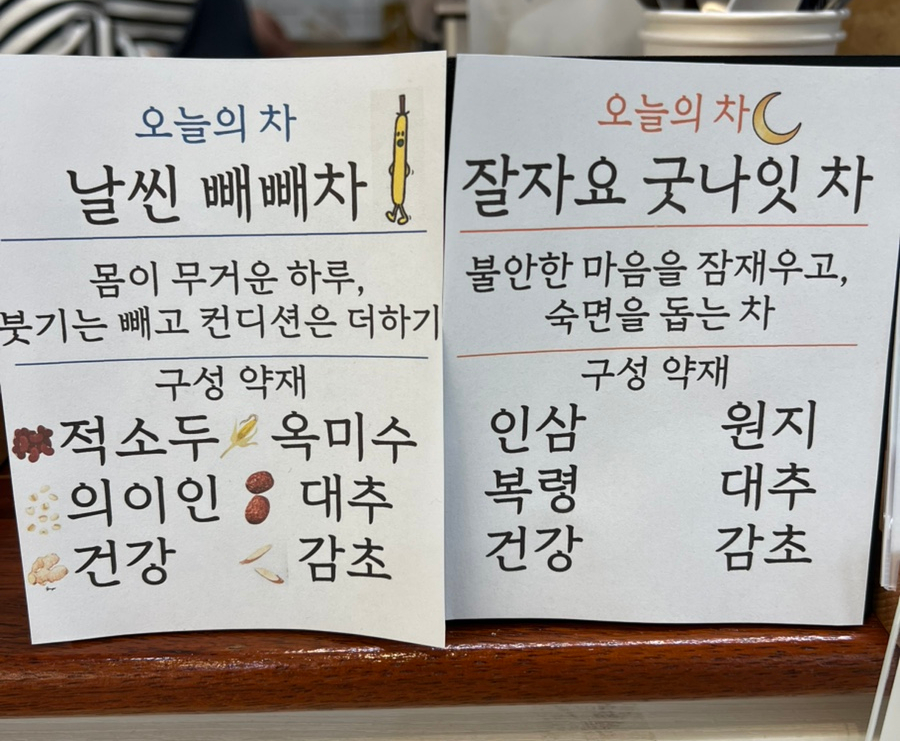 오늘의 차
날씬 빼빼차
몸이 무거운 하루,
붓기는 빼고 컨디션은 더하기
구성 약재
적소두 옥미수
의이인 대추
건강 감초
오늘의 차
잘자요 굿나잇 차
불안한 마음을 잠재우고,
숙면을 돕는 차
구성 약재
인삼 원지
복령 대추
건강 감초